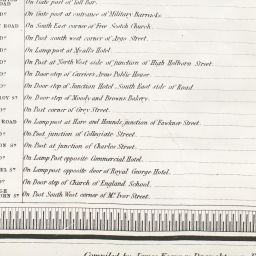 ROAD On Gate post of Toll Bar.
Dº On Gate post at entrance of Military Barracks.
ROAD On South East corner of Free Scotch Church.
Dº On Post south west corner of Argo Street.
Dº On Lamp post at Myall's Hotel.
Dº On Post at North West side of junction of High Holborn Street.
Dº On Door step of Carriers Arms Public House.
Dº On Door step of Junction Hotel, South East side of Road.
ST On Door step of Moody and Browns Bakery.
Dº On Post corner of Grey Street.
ROAD On Lamp post at Hare and Hounds, junction of Fawkner Street.
Dº On Post, junction of Collegiate Street.
N ST On Post at junction of Charles Street.
Dº On Lamp Post opposite Commercial Hotel.
ST On Lamp post opposite door of Royal George Hotel.
Dº On Door step of Church of England School.
RN ST On Post South West corner of Mc Iver Street.
Compiled by James